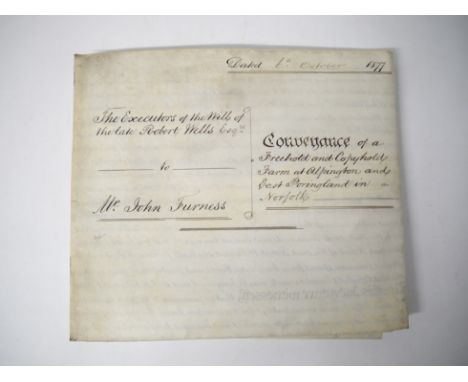 Dated 6th October 1877
The Executors of the Will of
the late Robert Wells Esqre
to
Mr John Furness
Conveyance of a
Freehold and Copyhold
Farm at Alpington and
East Poringland in
Norfolk